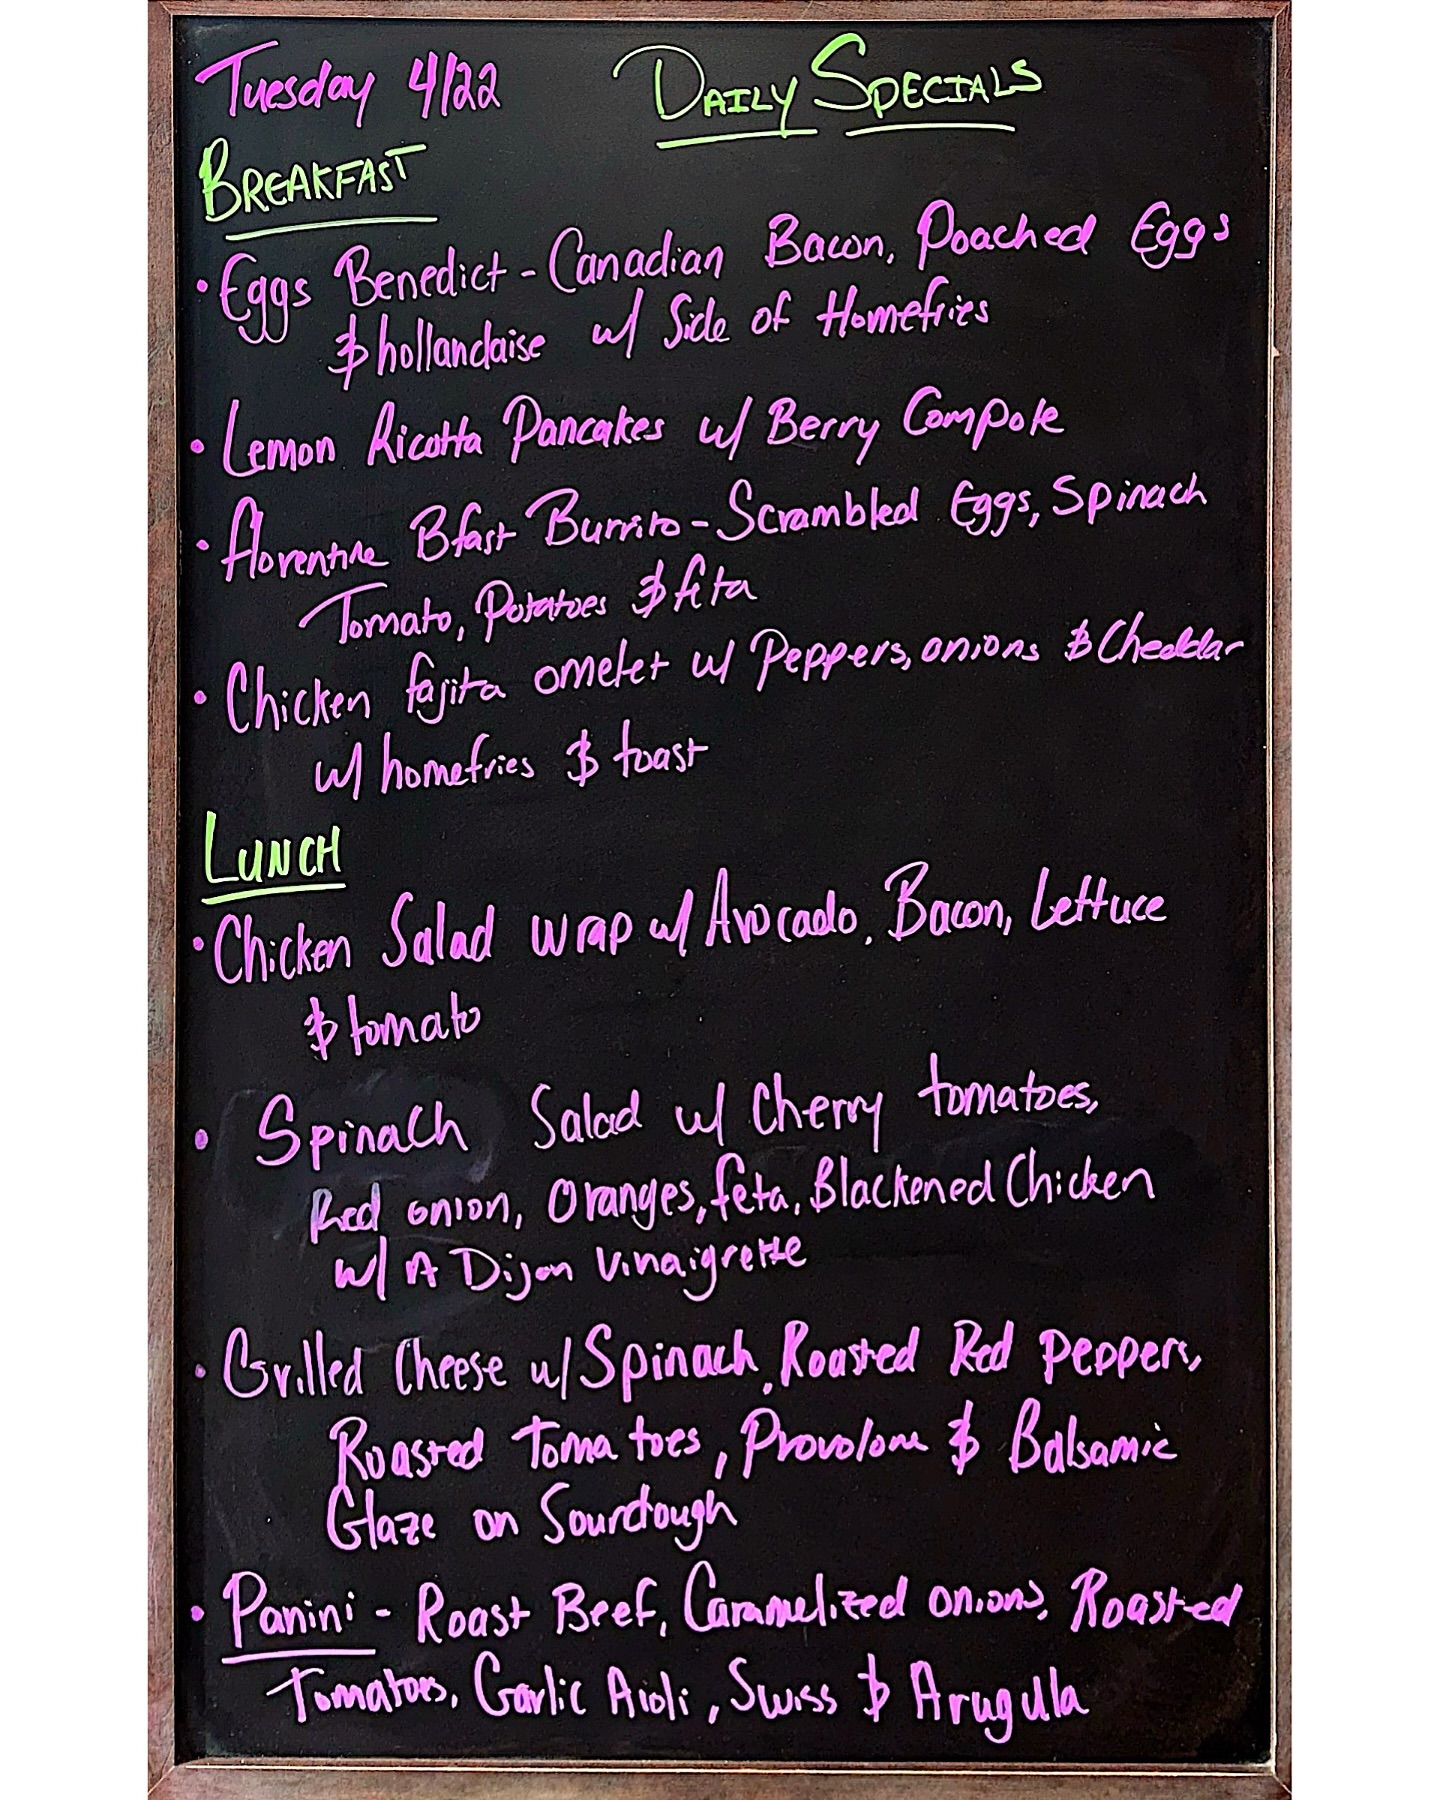 Tuesday 4/22 DAILY SPECIALS
BREAKFAST
• Eggs Benedict - Canadian Bacon, Poached Eggs
& hollandaise w/ Side of Homefries
• Lemon Ricotta Pancakes w/ Berry Compote
• Florentine Bfast Burrito - Scrambled Eggs, Spinach
Tomato, Potatoes & feta
• Chicken fajita omelet w/ Peppers, onions & Cheddar
w/ homefries & toast
LUNCH
• Chicken Salad wrap w/ Avocado, Bacon, Lettuce
& tomato
• Spinach Salad w/ Cherry tomatoes,
Red onion, Oranges, feta, Blackened Chicken
w/ A Dijon Vinaigrette
• Grilled Cheese w/ Spinach, Roasted Red Peppers,
Roasted Tomatoes, Provolone & Balsamic
Glaze on Sourdough
• Panini - Roast Beef, Caramelized onions, Roasted
Tomatoes, Garlic Aioli, Swiss & Arugula